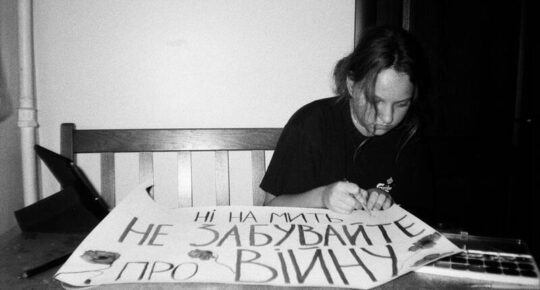 НІ НА МИТЬ
НЕ ЗАБУВАЙТЕ
ПРО ВІЙНУ